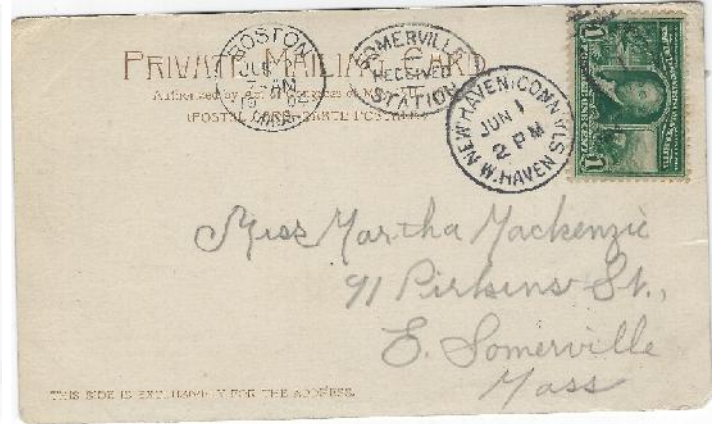 PRIVATE MAILING CARD
Authorized by Act of Congress of
(POSTAL CARD-CARTE POSTALE)
BOSTON
JUN
AM
SOMERVILLE
RECEIVED
STATION
NEW HAVEN, CONN.
JUN 1
2 PM
W. HAVEN STA.
1
1
Miss Martha Mackenzie
91 Pirkins St.,
E. Somerville
Mass
THIS SIDE IS EXCLUSIVELY FOR THE ADDRESS.